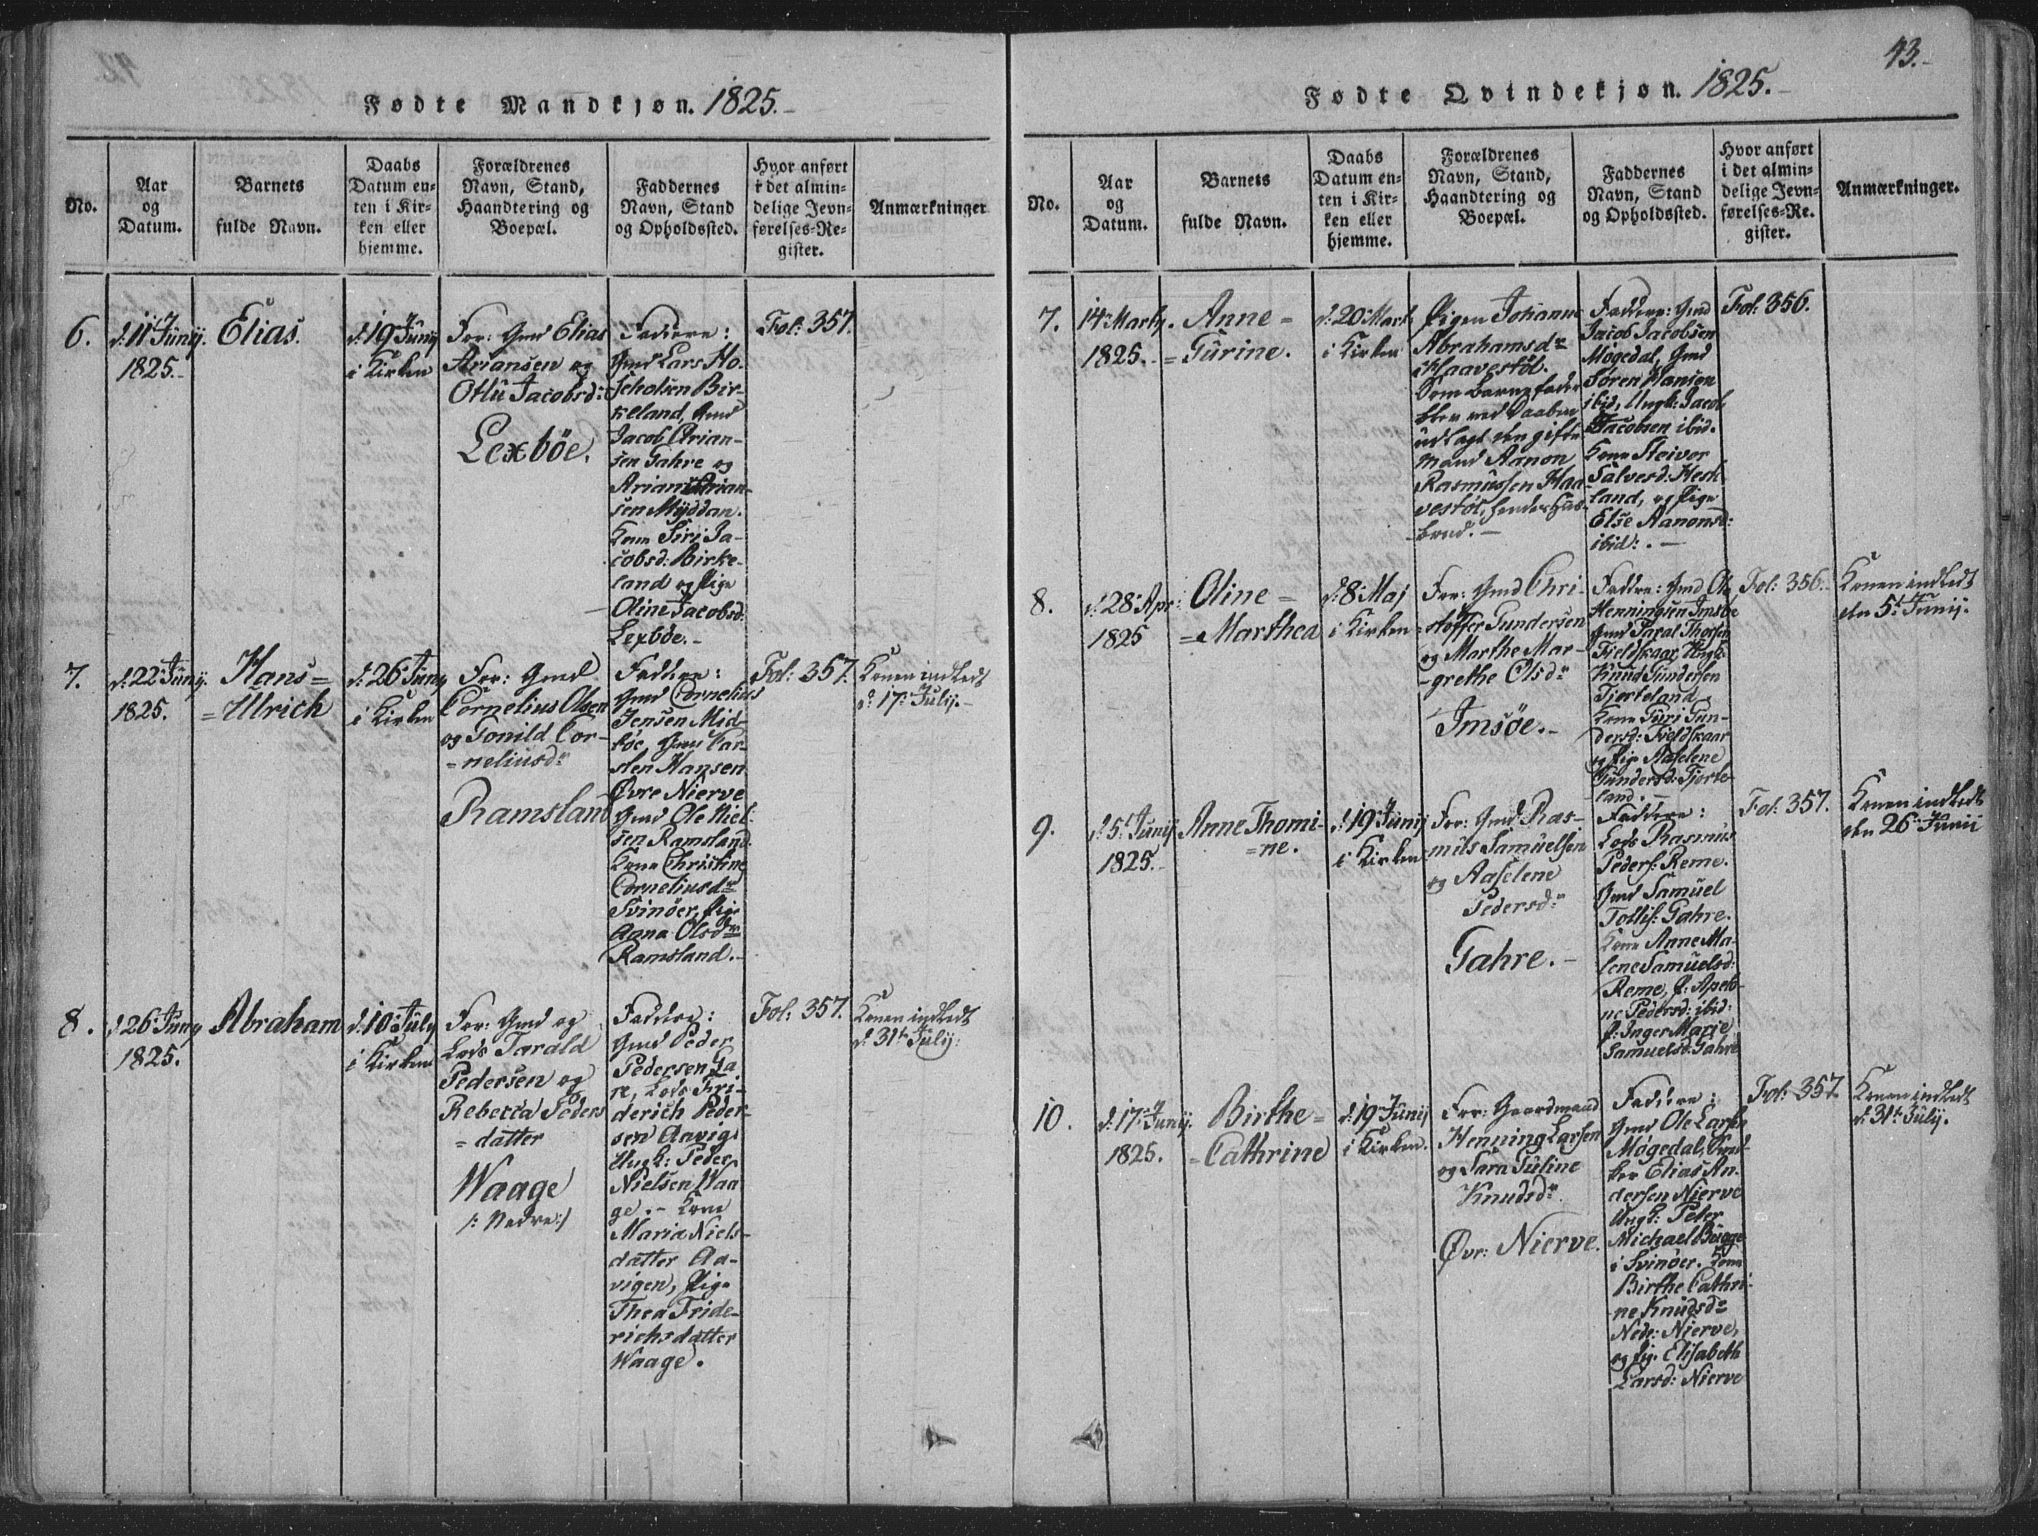 Fødte Mandkjøn. 1825.-
No.
Aar
og
Datum.
Barnets
fulde Navn.
Daabs
Datum en-
ten i Kir-
ken eller
hjemme.
Forældrenes
Navn, Stand,
Haandtering og
Boepæl.
Faddernes
Navn, Stand
og Opholdssted.
Hvor anført
i det almin-
delige Jevn-
førelses-Re-
gister.
Anmærkninger
6.
d: 11t Junij.
1825.-
Elias.
d: 19 Junij
i Kirken
For: Gmd Elias
Ariansen og
Otlu Jacobsd:
Lexböe.
Faddere:
Gmd Lars Ho-
scholsen Bir-
keland, Gmd
Jacob Arian-
sen Gahre og
Arian Arian-
sen Myddan.
Kone Siri Ja-
cobsd: Birke-
land og Pige
Oline Jacobsd:
Lexböe.-
Fol: 357.
7.
d: 22 Junij.
1825.
Hans =
= Ulrich
d: 26 Juny
i Kirken
For: Gmd
Cornelius Olsen
og Tonild Cor-
= neliusd:
Ramsland
Faddere:
Gmd Cornelius
Jensen Mid-
böe, Gmd Car-
sten Hansen
Øvre Nierve
Gmd Ole Niel-
sen Ramsland.
Kone Christine
Corneliusdr
Svinöer, Pige
Anna Olsdr
Ramsland.-
Fol: 357.
Konen indledt
d: 17: Julij.-
8.
d 26: Juny
1825.
Abraham
d: 10: July
i Kirken
For: Gmd og
Lods Tarald
Pedersen og
Rebecca Peders
= datter
Waage
/: Nedre:/
Faddere:
Gmd Peder
Pedersen Ga
re, Lods Fri-
derich Peder-
sen Aavig
Ungk: Peder
Nielsen Waa
ge.- Kone
Maria Niels-
datter Aa-
vigen, Pige
Thea Fride-
richsdatter
Waage.
Fol: 357.
Konen indledt
d: 31t Julij:
43.-
Fødte Qvindekjøn. 1825.-
No.
Aar
og
Datum.
Barnets
fulde Navn.
Daabs
Datum en-
ten i Kir-
ken eller
hjemme.
Forældrenes
Navn, Stand,
Haandtering og
Boepæl.
Faddernes
Navn, Stand
og Opholdssted.
Hvor anført
i det almin-
delige Jevn-
førelses-Re-
gister.
Anmærkninger.
7.
14: Marty.
1825.-
Anne =
= Gurine.
d: 20 Mart.
i Kirken
Pigen Johanne
Abrahamsdr
Haavestöl.
Som Barnefader
blev ved Daaben
udlagt den gifte
Mand Aanon
Rasmussen Haa
vestöl, hendes Hus-
bond.-
Faddere: Gmd
Jacob Jacobsen
Møgedal, Gmd
Sören Hansen
ibid, Ungk: Jacob
Jacobsen ibid.
Kone Steivor
Salvesd: Hesk-
land, og Pige
Else Aanonsd:
ibid:.-
Fol: 356.
8.
d: 28: Apr:
1825
Oline =
= Marthea
d: 8: Maj
i Kirken
For: Gmd Chri-
stoffer Gundersen
og Marthe Mar-
-grethe Olsdr
Imsöe.-
Faddere: Gmd Ole
Henningsen Imsöe
Gmd Taral Thorsen
Fieldskaar, Ungk:
Knud Gundersen
Tjorteland
Kone Guri Gun-
dersd: Fieldskaar
og Pige Aaselene
Gundersd: Tjorte-
land.-
Fol: 356.
Konen indledt
den 5t Junij.
9.
d. 5t Junij
1825.
Anne Thomi-
=ne.
d: 19 Junij
i Kirken
For: Gmd Ras-
mus Samuelsen
og Aaselene
Pedersd:
Gahre.-
Faddere:
Lods Rasmus
Peders: Reme.
Gmd Samuel
Tollis: Gahre.
Kone Anne Ma-
lene Samuelsd:
Reme, P: Apelo-
ne Pedersd: ibid:
P: Inger Marie
Samuelsd: Gahre
Fol: 357.
Konen indledt
den 26 Junii
10.
d: 17: Junij.
1825.
Birthe =
= Cathrine
d: 19 Junij
i Kirken.
For: Gaardmand
Henning Larsen
og Sara Guline
Knudsdr
Øvr: Nierve.
Faddere:
Gmd Ole Larsen
Møgedal, Enk-
ker Elias An-
dersen Nierve
Ungk: Peter
Michael Bugge
i Svinöer. Kone
Birthe Cathri-
ne Knudsdr
Ned: Nierve,
og Pig: Elisabeth
Larsd: Nierve
Fol: 357.
Konen indledt
d: 31t Julij.